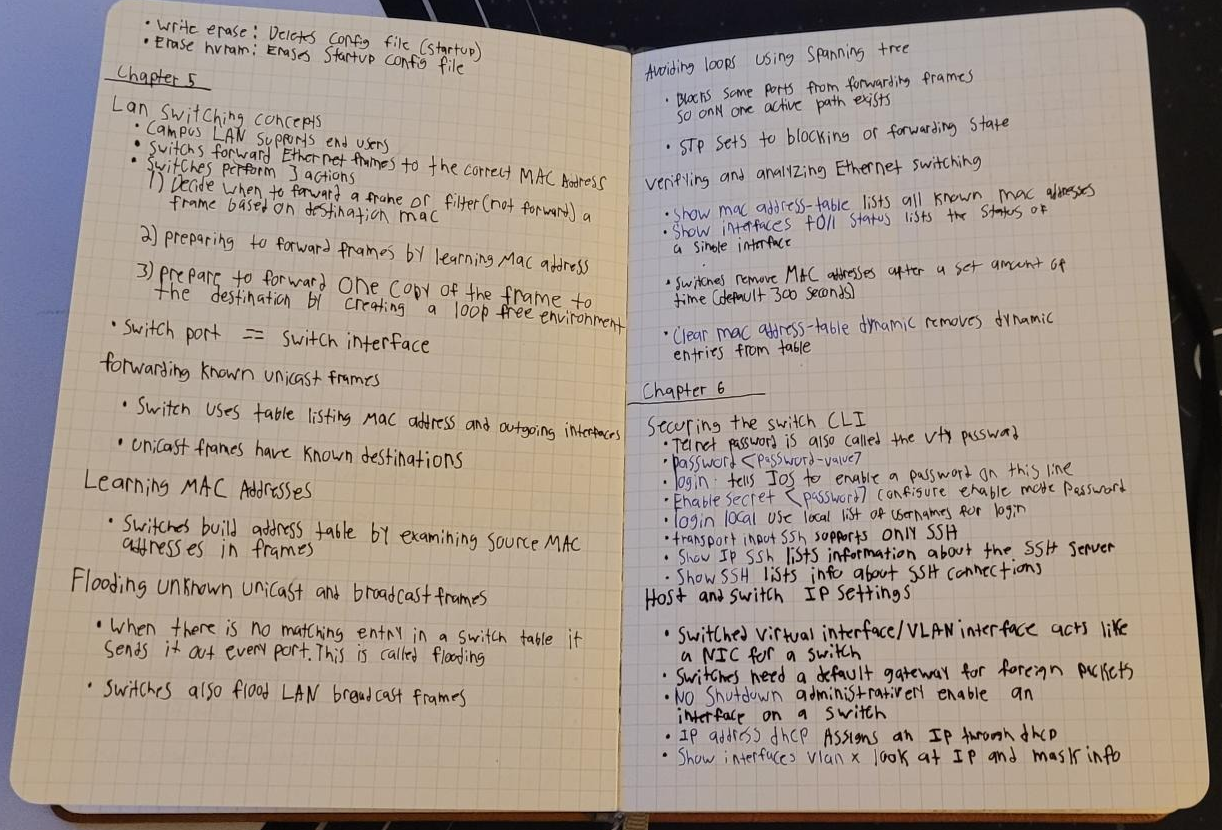 • Write erase: Deletes Config file (startup)
• Erase nvram: Erases Startup config file
Chapter 5
Lan switching concepts
• Campus LAN supports end users
• Switchs forward Ethernet frames to the correct MAC Address
• Switches perform 3 actions
1) Decide when to forward a frame or filter (not forward) a
frame based on destination mac
2) preparing to forward frames by learning Mac address
3) prepare to forward one copy of the frame to
the destination by creating a loop free environment
• Switch port == switch interface
forwarding known unicast frames
• Switch uses table listing Mac address and outgoing interfaces
• Unicast frames have known destinations
Learning MAC Addresses
• Switches build address table by examining source MAC
addresses in frames
Flooding unknown unicast and broadcast frames
• When there is no matching entry in a switch table it
sends it out every port. This is called flooding
• Switches also flood LAN broadcast frames
Avoiding loops using spanning tree
• Blocks some ports from forwarding frames
so only one active path exists
• STP sets to blocking or forwarding state
verifying and analyzing Ethernet switching
• Show mac address-table lists all known mac addresses
• Show interfaces f0/1 status lists the status of
a single interface
• Switches remove MAC addresses after a set amount of
time (default 300 seconds)
• Clear mac address-table dynamic removes dynamic
entries from table
Chapter 6
Securing the switch CLI
• Telnet password is also called the vty password
• password <password-value>
• login: tells IOS to enable a password on this line
• Enable secret <password> configure enable mode password
• login local use local list of usernames for login
• transport input SSh supports ONLY SSH
• Show Ip SSh lists information about the SSH server
• Show SSH lists info about SSH connections
Host and Switch IP Settings
• Switched virtual interface/VLAN interface acts like
a NIC for a switch
• Switches need a default gateway for foreign packets
• No Shutdown administratively enable an
interface on a switch
• IP address dhcp Assigns an IP through dhcp
• Show interfaces vlan x look at IP and mask info